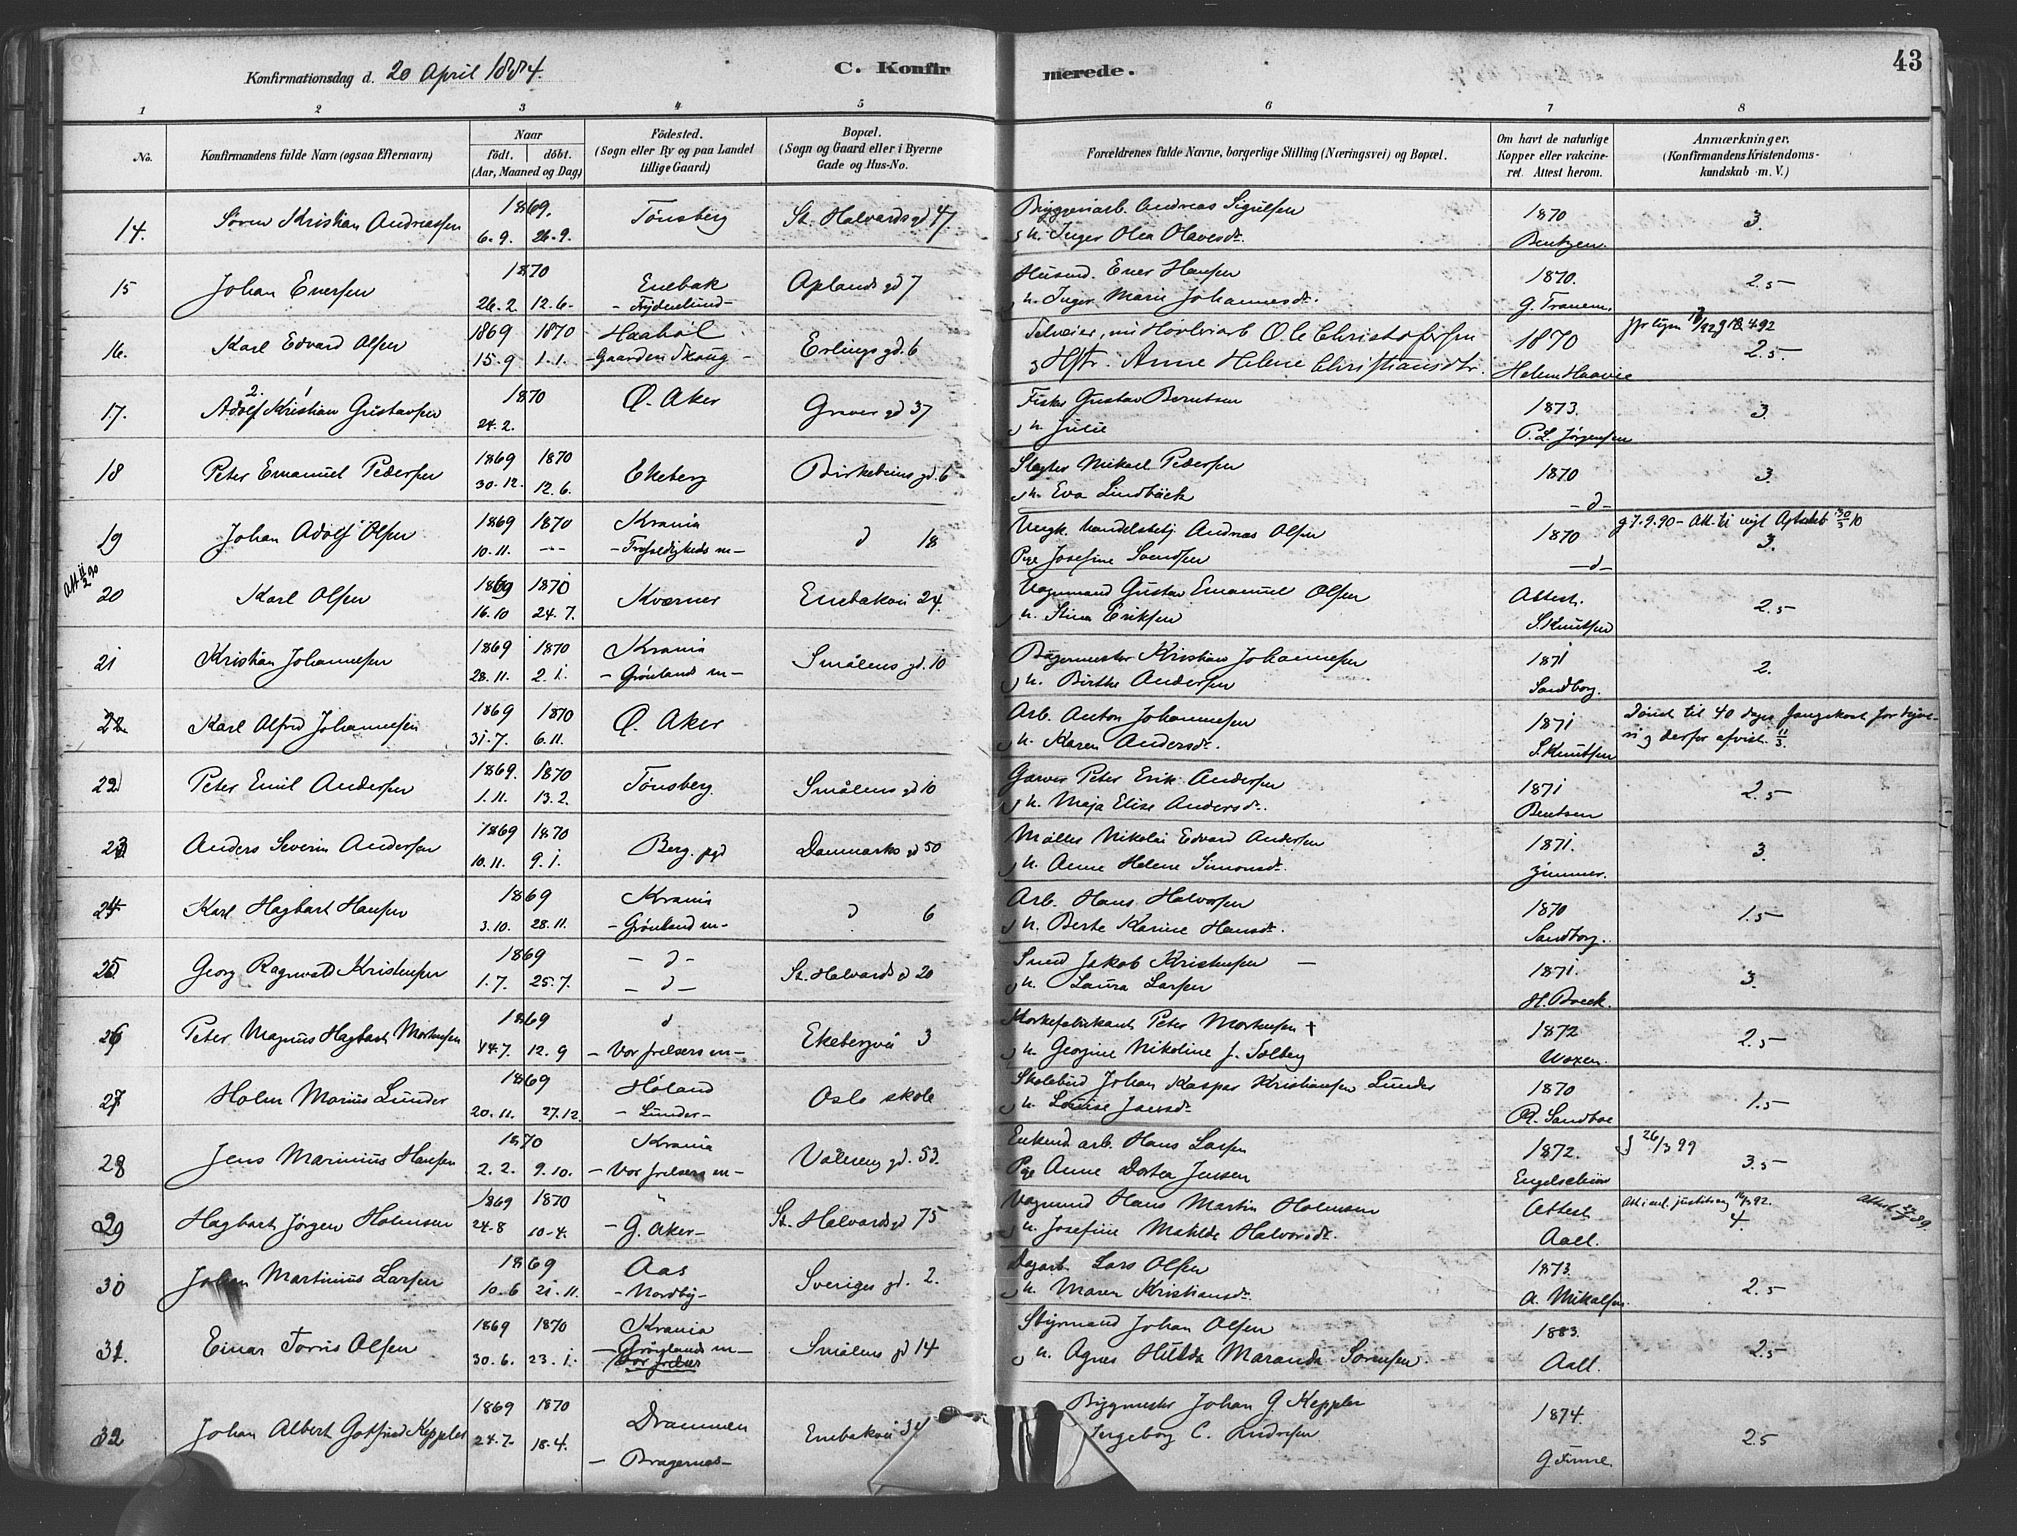 Konfirmationsdag d. 20 April 1884.
C. Konfirmerede.
43
1 2 3 4 5 6 7 8
No.
Konfirmandens fulde Navn (ogsaa Efternavn)
Naar
födt. döbt.
(Aar, Maaned og Dag)
Födested.
(Sogn eller By og paa Landet
tillige Gaard)
Bopæl.
(Sogn og Gaard eller i Byerne
Gade og Hus-No.
Forældrenes fulde Navne, borgerlige Stilling (Næringsvei) og Bopæl.
Om havt de naturlige
Kopper eller vakcine-
ret. Attest herom.
Anmærkninger.
(Konfirmandens Kristendoms-
kundskab m. V.)
14. Søren Kristian Andreassen 1869. 6.9. 26.9. Tønsberg St. Halvards gd 47. Bryggeriarb. Andreas Sigulsen
h. Inger Olea Olavesdr. 1870 Bentzen. 3.
15 Johan Enersen 1870 26.2. 12.6. Enebak
- Frydenlund - Oplands gd 7 Husmd. Ener Hansen
h. Inger Marie Johannesdr. 1870. G. Tranem. 2.5
16. Karl Edvard Olsen 1869 15.9 1870 1.1. Haabøl
- Gaarden Skoug - Erlings gd. 6 Selveier, nu Høvleriarb Ole Christofersen
Hstr. Anne Helene Christiansdtr. 1870 Helene Haavie 2.5.
17. Adolf Kristian Gustavsen 2. 1 1870 24.2. Ø. Aker Grøver gd 37 Fisker Gustav Berntsen
h. Julie 1873. P. L. Jørgensen 3.
18 Peter Emanuel Pedersen 1869 30.12. 1870 12.6. Ekeberg Birkebeins gd. 6 Slagter Mikael Pedersen
h. Eva Lindbäck 1870 - d - 3.
19 Johan Adolf Olsen 1869 10.11. 1870 --- Krania
- Trefoldigheds m - d 18 Ungk. handelsbetj. Andreas Olsen
Pge Josefine Svendsen 1870 - d - 3.
20 Karl Olsen 1869 16.10 1870 24.7. Kværner Enebakvei 24. Vognmand Gustav Emanuel Olsen
h. Stina Eriksen Attest. S. Knutsen 2.5
21 Kristian Johannesen 1869 28.11. 1870 2.1. Krania
- Grønlands m - Smålens gd. 10 Bøgermester Kristian Johannesen
h. Birthe Andersen 1871 Sandborg. 2.
22 Karl Alfred Johannesen 1869 31.7. 1870 6.11. Ø. Aker Arb. Anton Johannesen
h. Karen Andersdr. 1871 S. Knutsen Dømt til 40 dages fangekost for tyve-
ri og derfor afvist 11/3.
22 Peter Emil Andersen 1869. 1.11. 1870 13.2. Tønsberg. Smålens gd 10 Garver Peter Erik Andersen
h. Maja Elise Andersdr. 1871 Bentsen 2.5
23 Anders Severin Andersen 1869 10.11. 1870 9.1. Berg. pgd Danmarks gd 50 Møller Nikolai Edvard Andersen
h. Anne Helene Simonsdr. 1871. Zimmer. 3.
24 Karl Hagbart Hansen 1869 3.10. 28.11. Krania
- Grønland m - d 6 Arb. Hans Halvorsen
h. Berte Karine Hansdr. 1870 Sandborg. 1.5
25 Georg Ragnvald Kristensen 1869 1.7. 25.7. - d -
- d - St. Halvards d 20 Smed Jakob Kristensen
h. Laura Larsen 1871. H. Broek. 3.
26 Peter Magnus Hagbart Mortensen 1869 14.7. 12.9 d
- Vor frelsers m - Ekebergvei 3 Korkefabrikant Peter Mortensen †
h. Georgine Nikoline f. Solberg 1872 Woxen. 2.5
27 Holm Marius Lunder 1869 20.11. 27.12. Høland
- Lunder - Oslo skole Skolebud Johan Kaspar Kristiansen Lunder
h. Louise Jansdr. 1870 R. Sandboe 1.5
28 Jens Marinius Hansen 1870 2.2. 9.10. Krania
- Vor frelsers m - Vålereng gd. 53. Enkemd. arb. Hans Larsen
Pge Anne Dortea Jensen 1872. Engelschiøn 26/3 99 3.5
29 Hagbart Jørgen Holmsen 1869 24.8 1870 10.4. "
- G. Aker - St. Halvards gd 75 Vognmd Hans Martin Holmsen
h. Josefine Matilde Halvorsdr. Attest Aall. 4
30 Johan Martinius Larsen 1869 10.6 21.11. Aas
- Nordby - Sveriges gd. 2. Dagarb. Lars Olsen
h. Maren Kristiansdr. 1873. A. Mikalsen. 2.5
31. Einar Torris Olsen 1869 30.6. 1870 23.1. Krania
- Grønlands m -
Vor frelser Smålens gd 14 Styrmand Johan Olsen
h. Agnes Hulda Maranda Sørensen 1883. Aall. 2.5
32 Johan Albert Gotfred Keppler 1869 24.7. 1870 18.4. Drammen
- Bragernes - Enebakvei 34 Byggmester Johan G. Keppler
Ingeborg C. Andresen 1874. G. Finne. 2.5